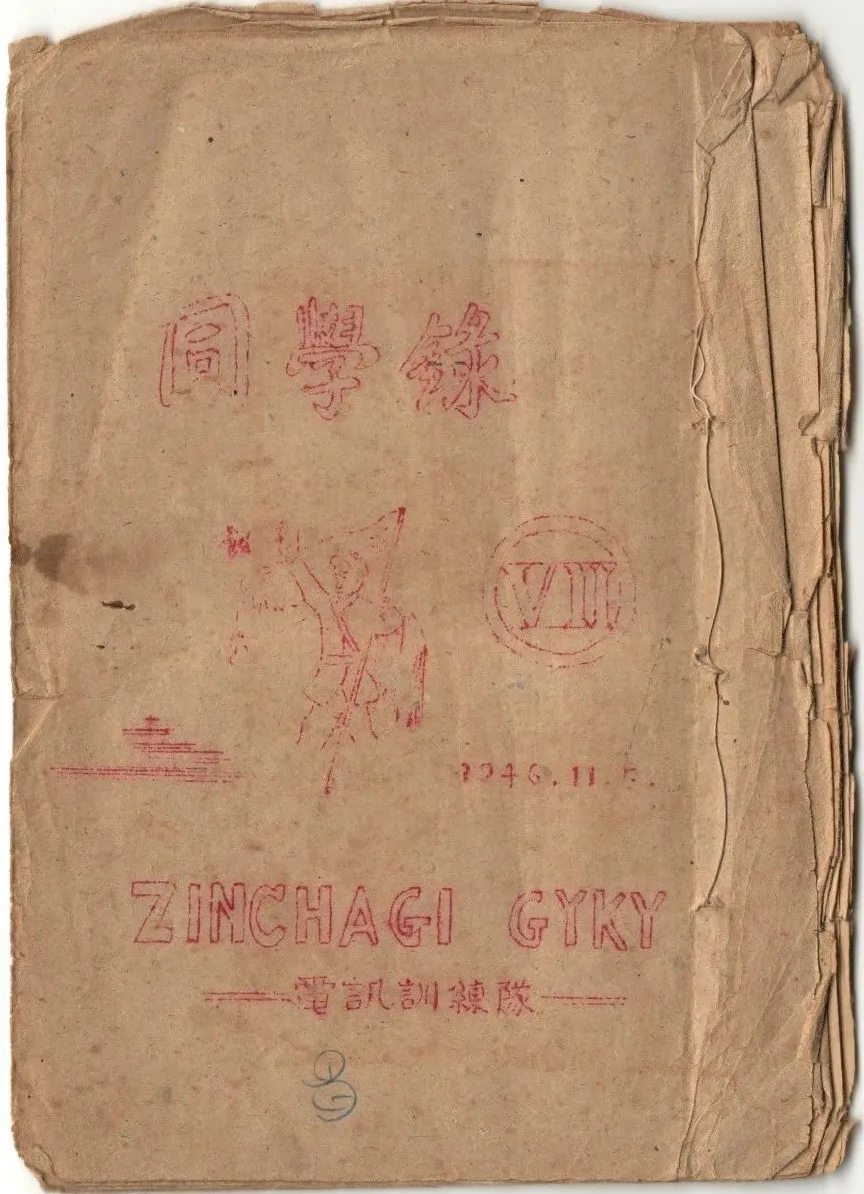 同學錄
VIII
1946.11.5.
ZINCHAGI GYKY
電訊訓練隊